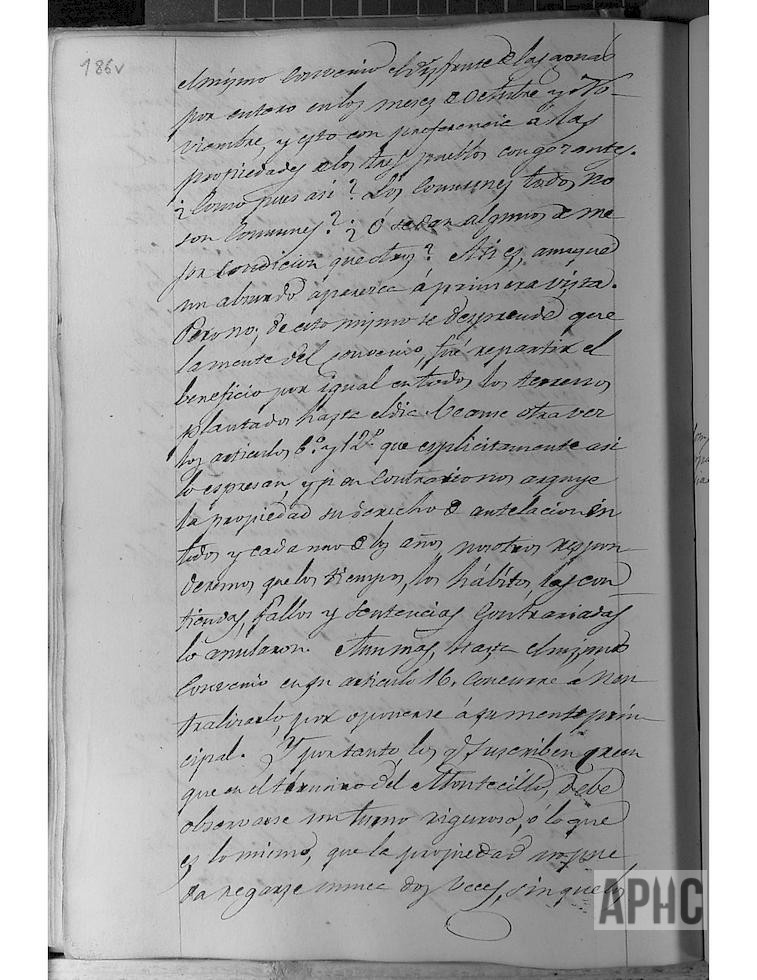 186v
el mismo Convenio el disfrute de las aguas
por entero en los meses de Octubre y No-
viembre, y esto con preferencia á las
propiedades de los tres pueblos congozantes.
¿Como pues asi? Los Comunes todos no
son Comunes? ¿O se dan algunos de me
jor Condicion que otros? Asi es, aunque
un absurdo aparezca á primera vista.
Pero no; de esto mismo se desprende que
la mente del convenio, fué repartir el
beneficio por igual en todos los terrenos
plantados hasta el dia. Veanse otra vez
los articulos 6.º y 12.º que esplicitamente asi
lo espresan, y si en Contrario nos arguye
la propiedad su derecho de antelacion en
todos y cada uno de los años, nosotros respon
deremos que los tiempos, los hábitos las con-
tiendas, fallos y sentencias Contrariadas
lo anularon. Aun mas, hasta el mismo
Convenio en su articulo 16, concurre a Neu
tralizarlo, por oponerse á su mente prin-
cipal. Y por tanto los q.e suscriben creen
que en el término del Montecillo, debe
observarse un turno riguroso, ó lo que
es lo mismo, que la propiedad no pue
da regarse nunca dos veces, sin que los
APHC